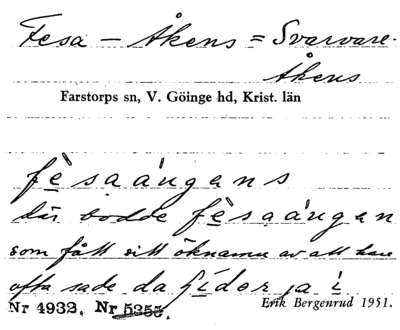 Fesa – Åkens = Svarvare-
Åkens
Farstorps sn, V. Göinge hd, Krist. län
fèsaáṇgens
där bodde fèsaáṇgen
som fått sitt öknamn av att han
ofta sade da
Nr 4932. Nr 5355.
Erik Bergenrud 1951.